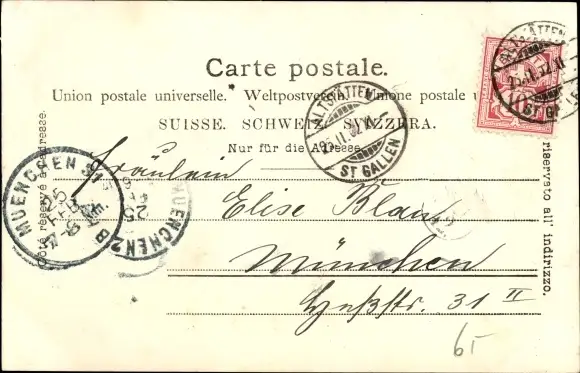 Carte postale.
Union postale universelle. Weltpostverein. Unione postale u
SUISSE. SCHWEIZ. SVIZZERA.
Nur für die Adresse.
Côté réservé à l'adresse.
riservato all' indirizzo.
ALTSTÄTTEN
ST GALLEN
ALTSTÄTTEN
ST GALLEN
MUENCHEN
25
FEB
B
MUENCHEN 2
25
Fräulein
Elise Blau
München
Heßstr. 31 II